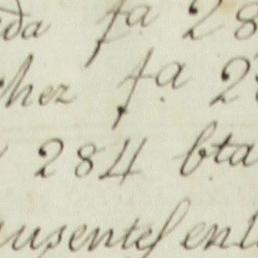 fa 28
chez fa 2
284 bta
ausentes en l